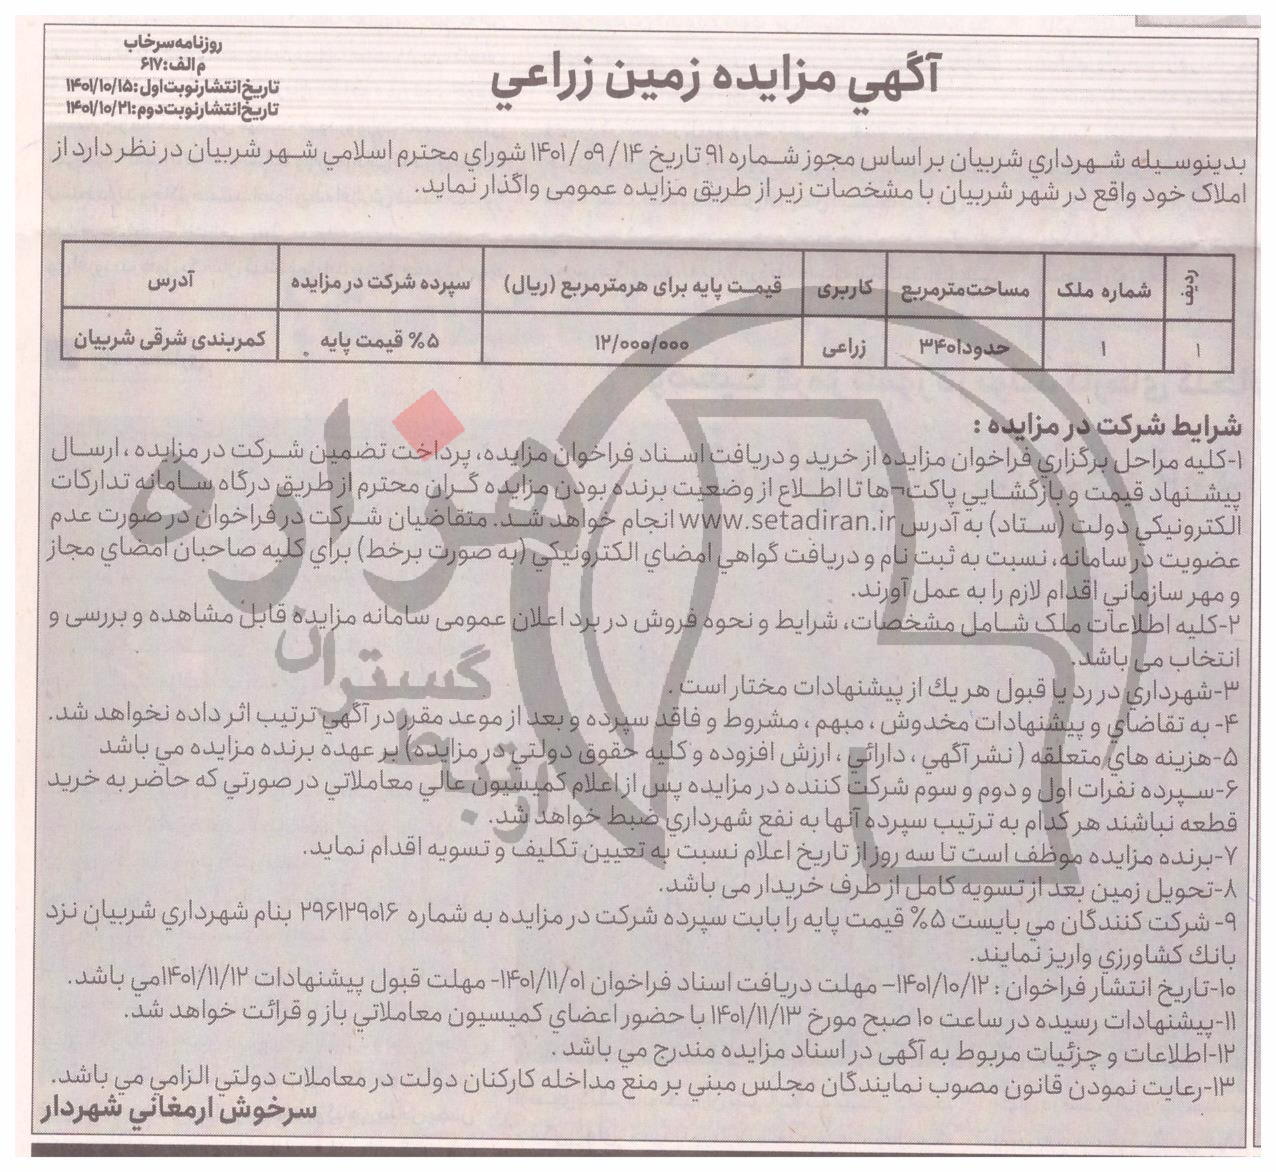 روزنامه سرخاب
م الف: ۶۱۷
تاریخ انتشار نوبت اول: ۱۴۰۱/۱۰/۱۵
تاریخ انتشار نوبت دوم: ۱۴۰۱/۱۰/۲۱
آگهي مزايده زمين زراعي
بدينوسيله شهرداري شربيان بر اساس مجوز شماره ۹۱ تاريخ ۱۴ / ۰۹ / ۱۴۰۱ شوراي محترم اسلامي شهر شربيان در نظر دارد از
املاک خود واقع در شهر شربیان با مشخصات زیر از طریق مزایده عمومی واگذار نماید.
ردیف شماره ملک مساحت مترمربع کاربری قیمت پایه برای هر مترمربع (ریال) سپرده شرکت در مزایده آدرس
۱ ۱ حدودا ۳۴۰۱ زراعی ۱۲/۰۰۰/۰۰۰ ۵% قیمت پایه کمربندی شرقی شربیان
شرایط شرکت در مزایده :
۱-کلیه مراحل برگزاري فراخوان مزایده از خرید و دریافت اسناد فراخوان مزایده، پرداخت تضمین شرکت در مزایده ، ارسال
پیشنهاد قیمت و بازگشایي پاکت¬ها تا اطلاع از وضعیت برنده بودن مزایده گران محترم از طریق درگاه سامانه تدارکات
الکترونیکي دولت (ستاد) به آدرس www.setadiran.ir انجام خواهد شد. متقاضیان شرکت در فراخوان در صورت عدم
عضویت در سامانه، نسبت به ثبت نام و دریافت گواهي امضاي الکترونیکي (به صورت برخط) براي کلیه صاحبان امضاي مجاز
و مهر سازماني اقدام لازم را به عمل آورند.
۲-کلیه اطلاعات ملک شامل مشخصات، شرایط و نحوه فروش در برد اعلان عمومی سامانه مزایده قابل مشاهده و بررسی و
انتخاب می باشد.
۳-شهرداري در رد يا قبول هر يك از پیشنهادات مختار است .
۴- به تقاضاي و پیشنهادات مخدوش ، مبهم ، مشروط و فاقد سپرده و بعد از موعد مقرر در آگهي ترتیب اثر داده نخواهد شد.
۵-هزینه هاي متعلقه ( نشر آگهي ، دارائي ، ارزش افزوده و کلیه حقوق دولتي در مزایده) بر عهده برنده مزایده مي باشد
۶-سپرده نفرات اول و دوم و سوم شرکت کننده در مزایده پس از اعلام کمیسیون عالي معاملاتي در صورتي که حاضر به خرید
قطعه نباشند هر کدام به ترتیب سپرده آنها به نفع شهرداري ضبط خواهد شد.
۷-برنده مزایده موظف است تا سه روز از تاریخ اعلام نسبت به تعیین تکلیف و تسویه اقدام نماید.
۸-تحویل زمین بعد از تسویه کامل از طرف خریدار می باشد.
۹- شرکت کنندگان مي بایست ۵% قیمت پایه را بابت سپرده شرکت در مزایده به شماره ۲۹۶۱۲۹۰۱۶ بنام شهرداري شربیان نزد
بانك کشاورزي واریز نمایند.
۱۰-تاریخ انتشار فراخوان : ۱۴۰۱/۱۰/۱۲– مهلت دریافت اسناد فراخوان ۱۴۰۱/۱۱/۰۱- مهلت قبول پیشنهادات ۱۴۰۱/۱۱/۱۲مي باشد.
۱۱-پیشنهادات رسیده در ساعت ۱۰ صبح مورخ ۱۴۰۱/۱۱/۱۳ با حضور اعضاي کمیسیون معاملاتي باز و قرائت خواهد شد.
۱۲-اطلاعات و جزئیات مربوط به آگهی در اسناد مزایده مندرج مي باشد .
۱۳-رعایت نمودن قانون مصوب نمایندگان مجلس مبني بر منع مداخله کارکنان دولت در معاملات دولتي الزامي مي باشد.
سرخوش ارمغاني شهردار
هزاره
گستران
ارتباط